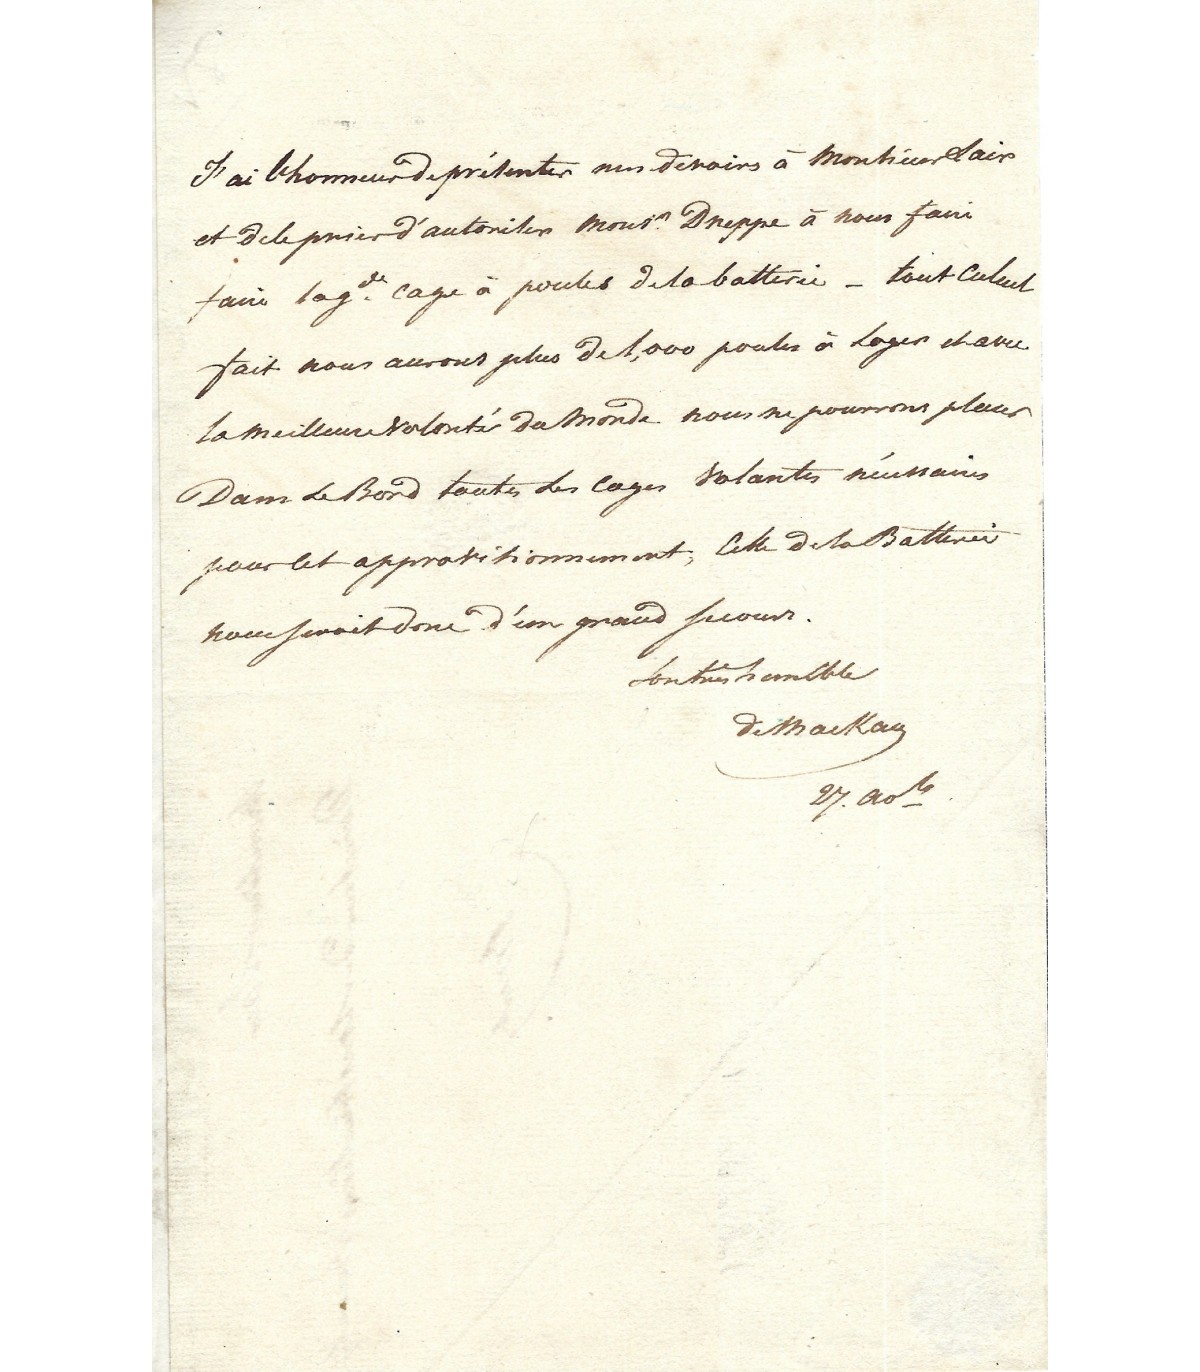 J'ai l'honneur de présenter mes devoirs à Monsieur Lair
et de le prier d'autoriser Monsr. Dreppe à nous faire
faire la gde. cage à poules de la batterie _ tout calcul
fait nous aurons plus de 1,000 poules à loger et avec
la meilleure volonté du Monde nous ne pourrons placer
Dans le Bord toutes les cages volantes nécessaires
pour cet approvisionnement, Celle de la Batterie
nous serait donc d'un grand secours.
Son très humble
de Mackau
27.